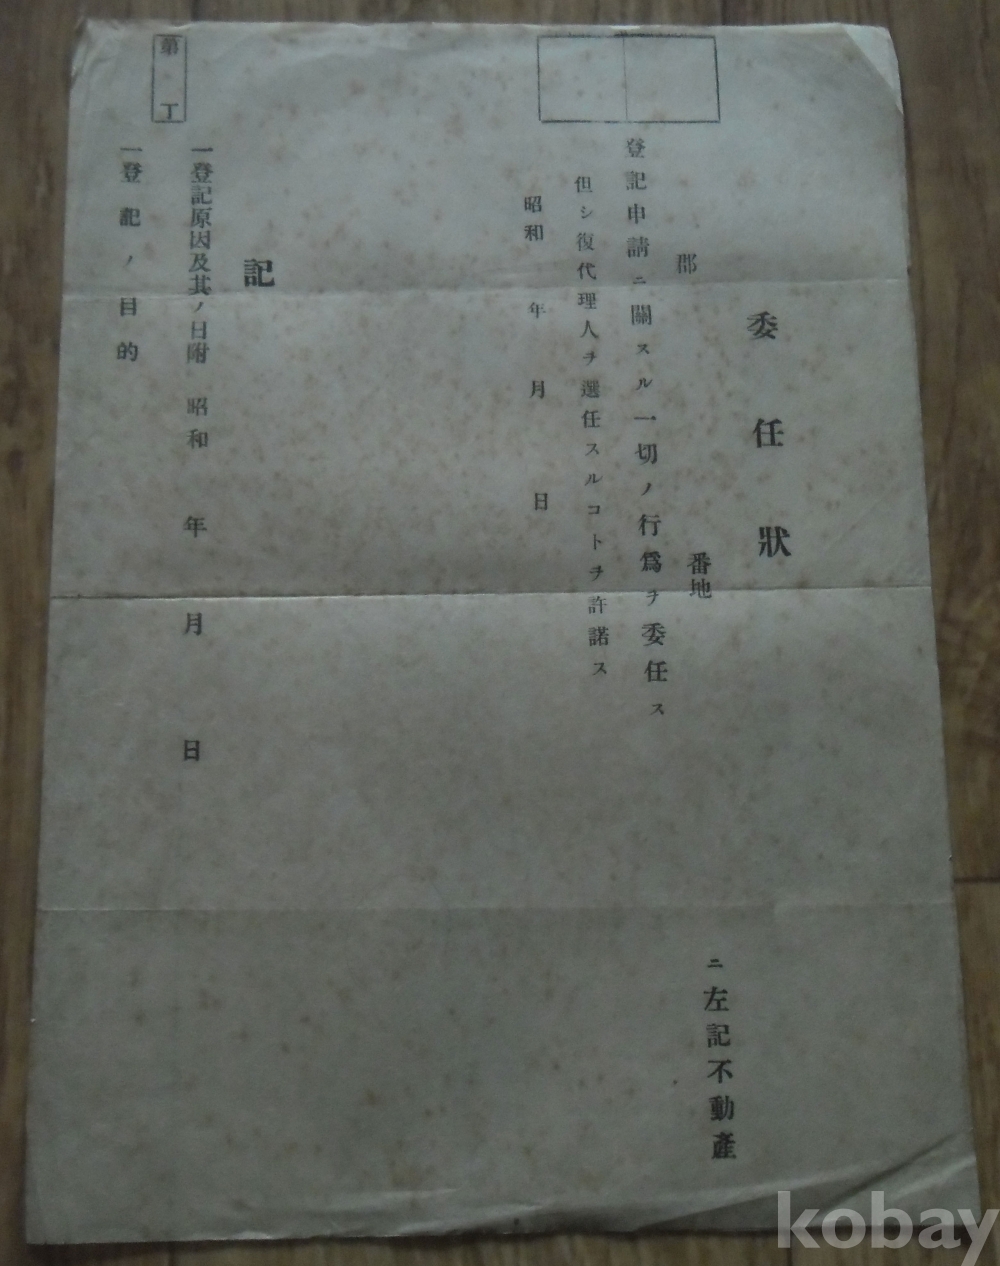 委任狀
郡 番地 ニ左記不動產
登記申請ニ關スル一切ノ行爲ヲ委任ス
但シ復代理人ヲ選任スルコトヲ許諾ス
昭和 年 月 日
記
一登記原因及其ノ日附 昭和 年 月 日
一登記ノ目的
第 丁
kobay